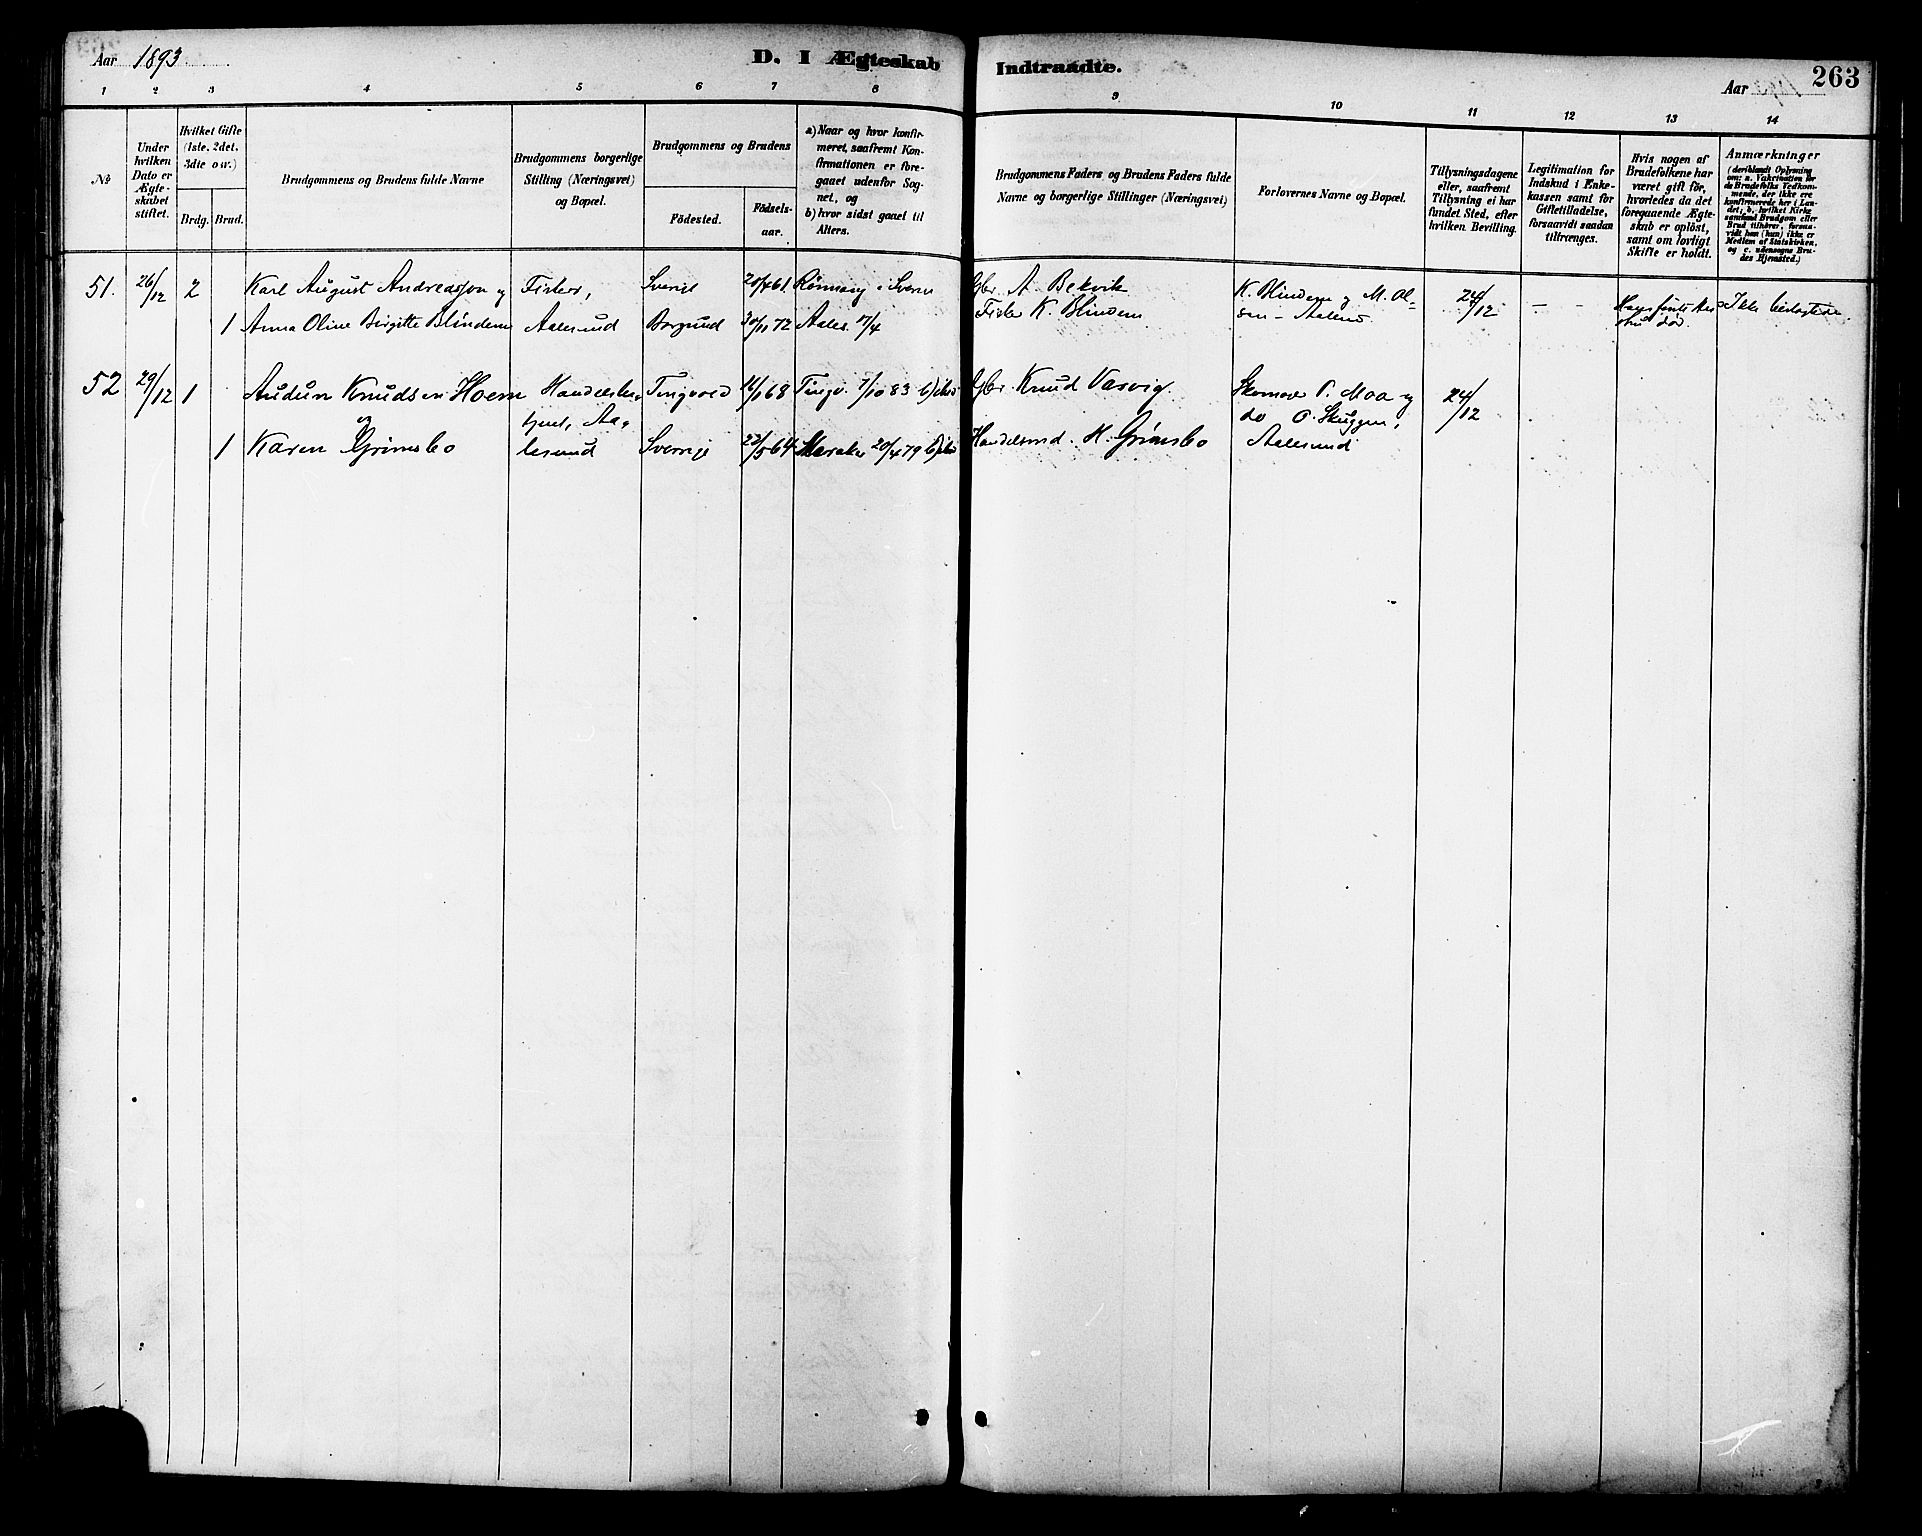 Aar 1893
D. I Ægteskab Indtraadte.
Aar 1893
263
1 2 3 4 5 6 7 8 9 10 11 12 13 14
No
Under hvilken Dato er Ægteskabet stiftet.
Hvilket Gifte (1ste, 2det, 3die o s v.)
Brdg. Brud.
Brudgommens og Brudens fulde Navne
Brudgommens borgerlige Stilling (Næringsvei) og Bopæl.
Brudgommens og Brudens
Födested.
Födselsaar.
a) Naar og hvor konfirmeret, saafremt Konfirmationen er foregaaet udenfor Sognet, og
b) hvor sidst gaaet til Alters.
Brudgommens Faders og Brudens Faders fulde Navne og borgerlige Stillinger (Næringsvei)
Forlovernes Navne og Bopæl.
Tillysningsdagene eller, saafremt Tillysning ei har fundet Sted, efter hvilken Bevilling.
Legitimation for Indskud i Enkekassen samt for Giftetilladelse, forsaavidt saadan tiltrænges.
Hvis nogen af Brudefolkene har været gift før, hvorledes da det foregaaende Ægteskab er oplöst, samt om lovligt Skifte er holdt.
Anmærkninger
(deriblandt Oplysning om: a. Vaksination for de Brudefolks Vedkommende, der ikke ere konfirmerede her i Landet; b. hvilket Kirkesamfund Brudgom eller Brud tilhører, forsaavidt han (hun) ikke er Medlem af Statskirken, og c. udensogns Brudes Hjemsted.)
51. 26/12 2 Karl August Andreasson og Fisker, Sverige 20/4 61 Rönnäng i Sverige Gbr. A. Bekvik K. Blindem og M. Ol- 24/12 — —
1 Anna Oline Birgitte Blindem Aalesund Borgund 30/11 72 Aales. 17/4 Fisker K. Blindem sen – Aalesd. Ikke beslægtede.
52 29/12 1 Audun Knudsen Hoem Tingvold 16/1 68 Tingv. 7/10 83 Gbr. Knud Vasvig Skomager P. Moa og 24/12
og
1 Karen Grimsbo lesund Sverrige 22/5 64 Meraker 20/4 79 Handelsmd. H. Grimsbo do O. Skuggen, Aalesund